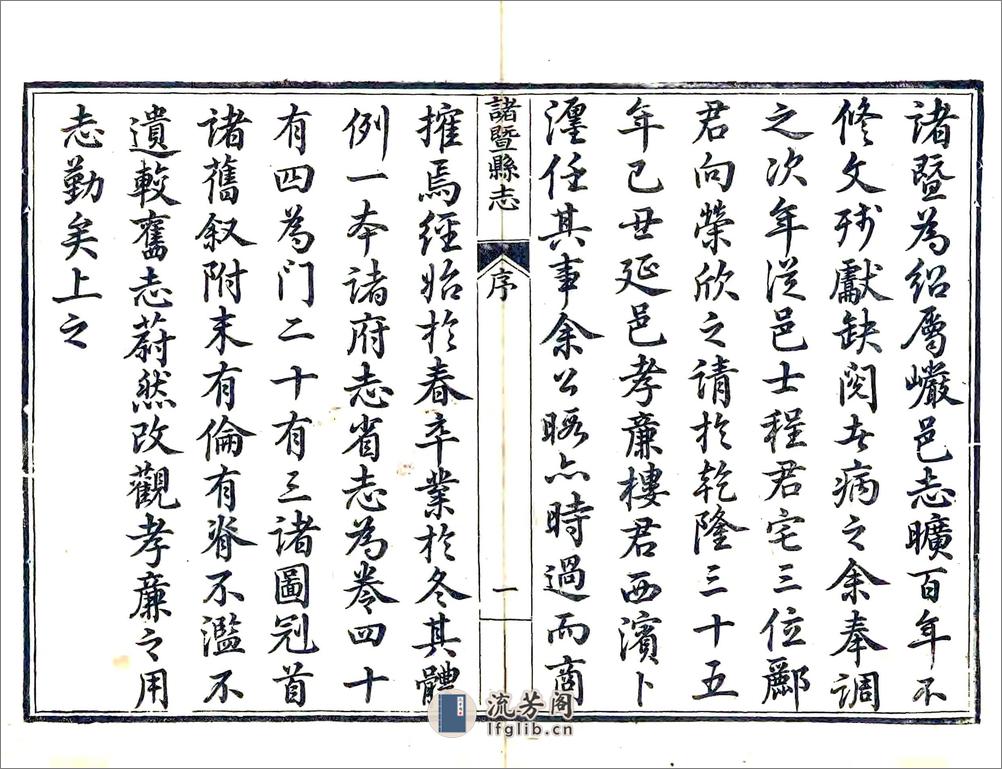 諸暨為紹屬巖邑志曠百年不
修文殘獻缺閱者病之余奉調
之次年從邑士程君宅三位酈
君向榮欣之請於乾隆三十五
年已丑延邑孝廉樓君西濱卜
瀍任其事余公暇亦時過而商
諸暨縣志
序
一
搉焉經始於春卒業於冬其體
例一本諸府志省志為卷四十
有四為門二十有三諸圖冠首
諸舊叙附末有倫有脊不濫不
遺較舊志蔚然改觀孝廉之用
志勤矣上之
流芳阁
lfglib.cn